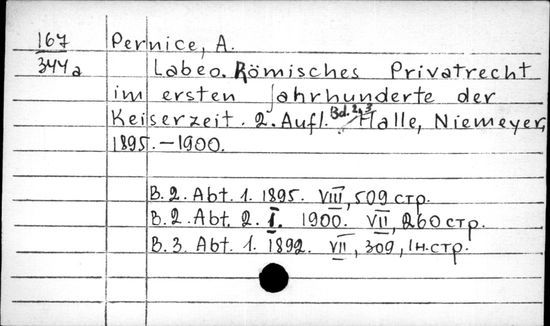 167 Pernice, A.
344a Labeo. Römisches Privatrecht
im ersten Jahrhunderte der
Keiserzeit. 2. Aufl. Bd. 2, 3 Halle, Niemeyer,
1895. – 1900.
B. 2. Abt. 1. 1895. VIII, 509 стр.
B. 2. Abt. 2. I. 1900. VII, 260 стр.
B. 3. Abt. 1. 1892. VII, 309, 1 н. стр.